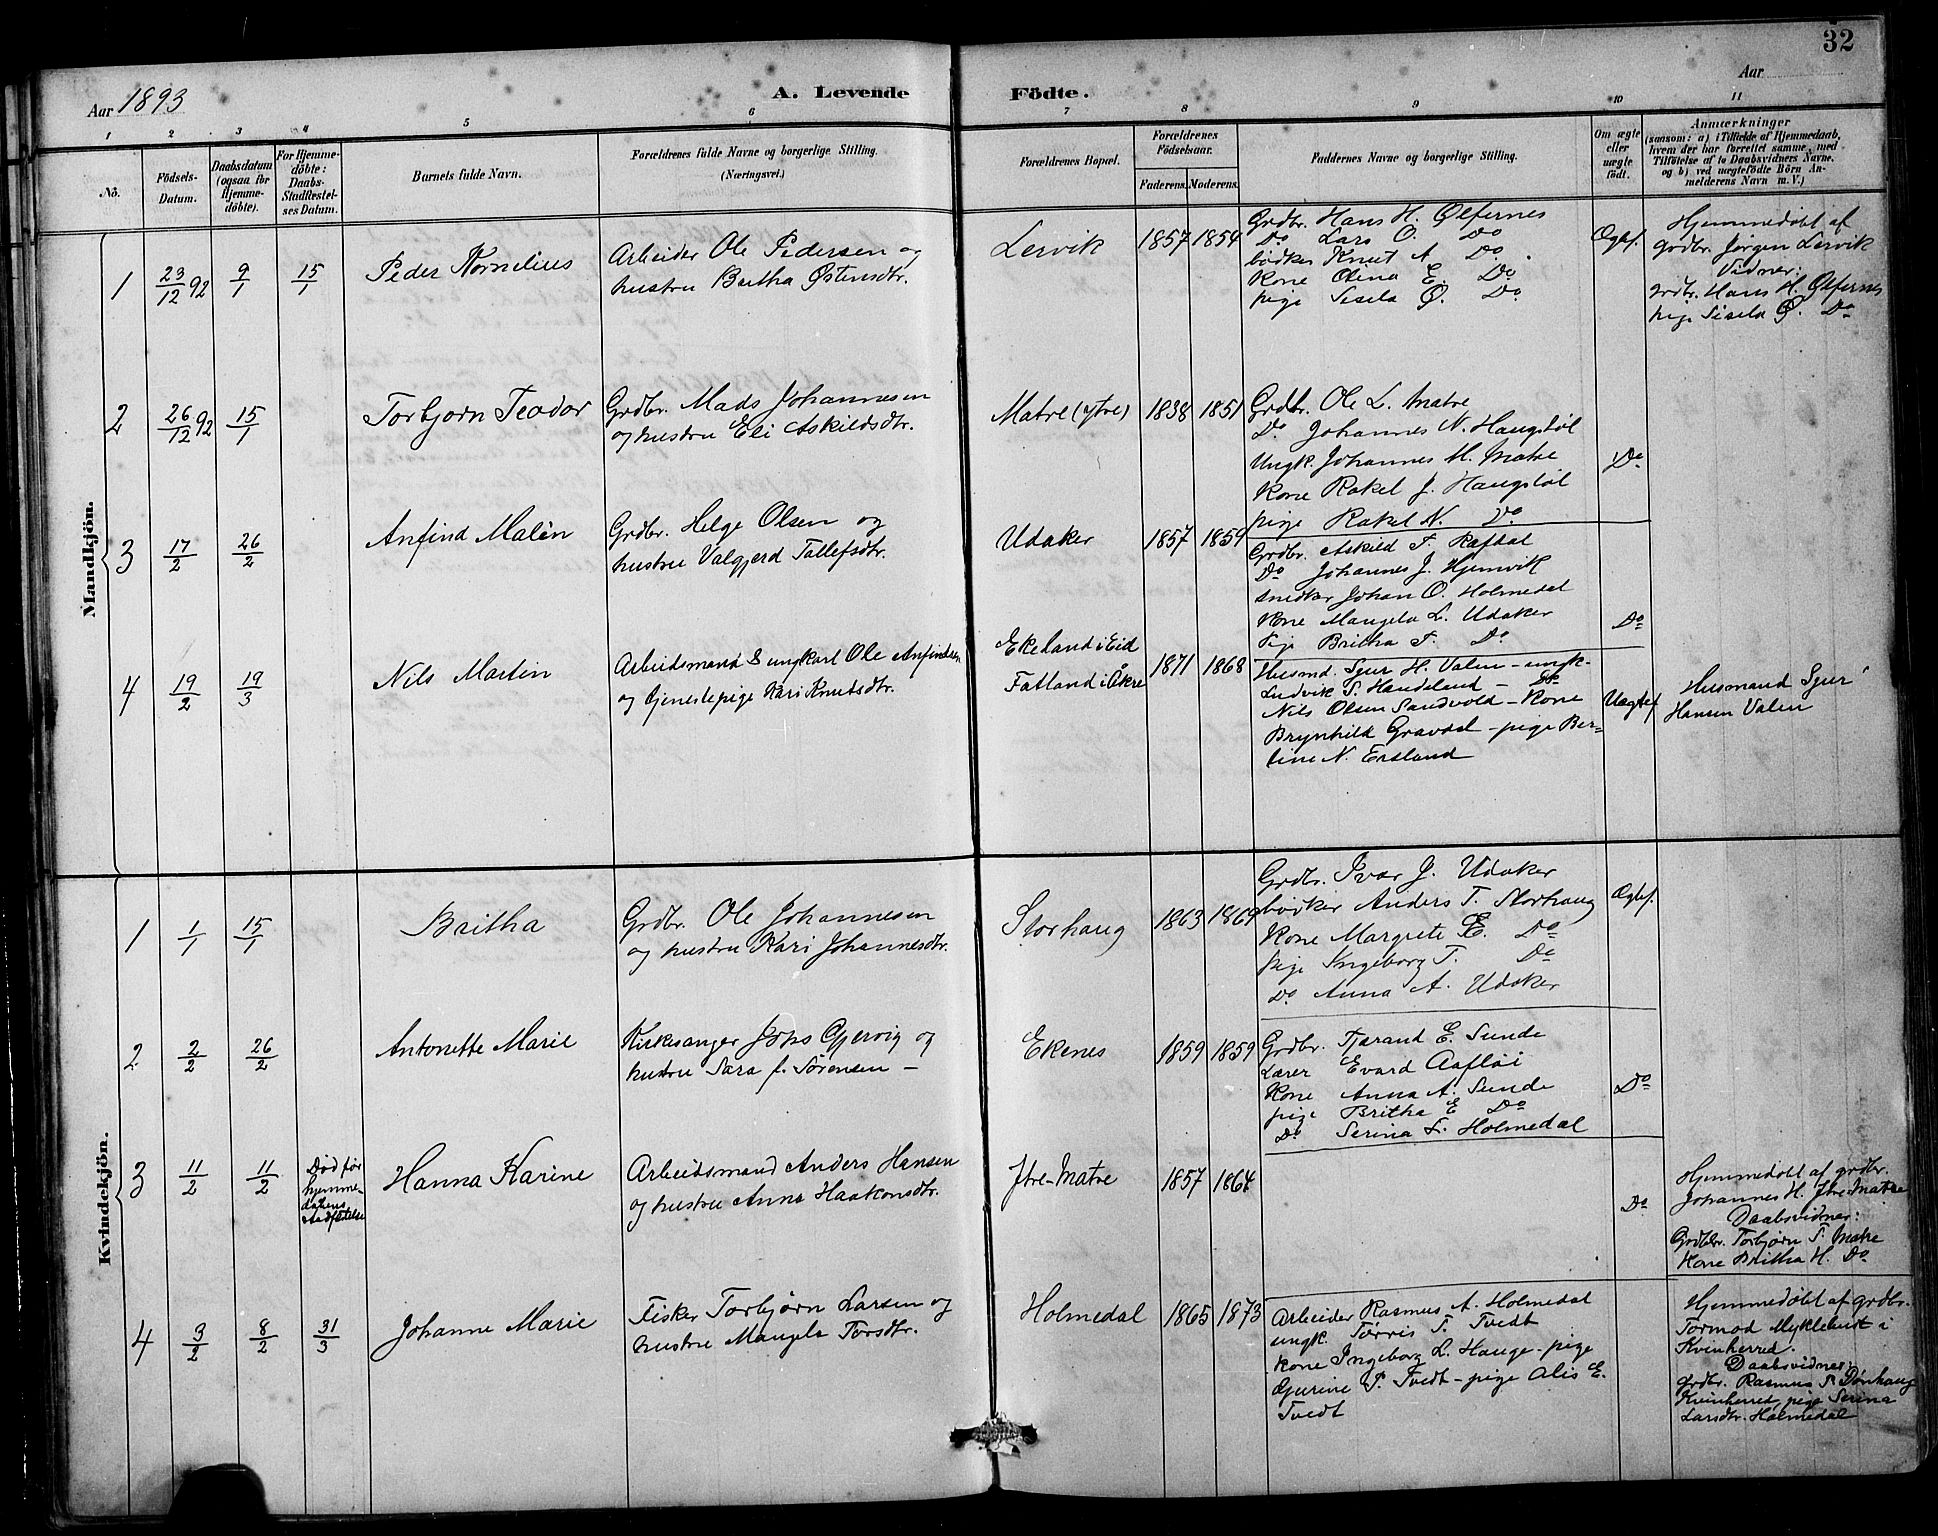 32
Aar 1893
A. Levende Födte.
Aar
1 2 3 4 5 6 7 8 9 10 11
No.
Födsels-Datum.
Daabsdatum (ogsaa for Hjemme-döbte).
For Hjemme-döbte: Daabs-Stadfæstel-ses Datum.
Barnets fulde Navn.
Forældrenes fulde Navne og borgerlige Stilling.
(Næringsvei.)
Forældrenes Bopæl.
Forældrenes Födselsaar.
Faderens. Moderens.
Faddernes Navne og borgerlige Stilling.
Om ægte eller uægte födt.
Anmærkninger
(saasom: a) i Tilfælde af Hjemmedaab,
hvem der har forrettet samme, med
Tilföielse af to Daabsvidners Navne,
og b) ved uægtefödte Börn An-
melderens Navn m. V.)
Mandkjön.
1 23/12 92 9/1 15/1 Peder Kornelius
Arbeider Ole Pedersen og
hustru Britha Østensdtr.
Lervik 1857 1854
Grdbr. Hans H. Ølfernes
Do Lars O. Do
bødker Knut A. Do
Kone Olina E. Do
pige Sisela Ø. Do
Ægtef.
Hjemmedøbt af
grdbr. Jørgen Lervik
Vidner:
grdbr. Hans H. Ølfernes
pige Sisela Ø. Do
2 26/12 92 15/1 Torbjørn Teodor
Grdbr. Mads Johannesen
og hustru Eli Askildsdtr.
Matre (ytre) 1838 1851
Grdbr. Ole L. Matre
Do Johannes N. Haugstøl
Ungk. Johannes M. Matre
Kone Rakel J. Haugstøl
pige Rakel N. Do
Do
3 17/2 26/2 Anfind Malèn
Grdbr. Helge Olsen og
hustru Valgjerd Tollefsdtr.
Udaker 1857 1859
Grdbr. Askild T. Røfdal
Do Johannes J. Hjemvik
snedker Johan O. Holmedal
Kone Mangela L. Udaker
Pige Britha T. Do
Do
4 19/2 19/3 Nils Martin
Arbeidsmand & ungkarl Ole Anfindsen
og tjenestepige Kari Knutsdtr.
Ekeland i Eid
Fatland i Åkre
1871 1868
Husmd. Sjur H. Valen - ungk.
Ludvik S. Handeland - Do
Nils Olsen Sandvold - Kone
Brynhild Gravdal - pige Ber=
tine N. Ersland
Uægtef.
Husmand Sjur
Hansen Valen
Kvindekjön.
1 1/1 15/1 Britha
Grdbr. Ole Johannesen
og hustru Kari Johannesdtr.
Storhaug 1863 1869
Grdbr. Ivar J. Udaker
bødker Anders T. Storhaug
Kone Margrete E. Do
pige Ingeborg T. Do
Do Anna A. Udaker
Ægtef.
2 2/2 26/2 Antonette Marie
Kirksanger Johs Gjervig og
hustru Sara f. Sørensen -
Ekenes 1859 1859
Grdbr. Tjerand E. Sunde
Lærer Evard Aafløi
Kone Anna A. Sunde
pige Britha E Do
Do Serina L. Holmedal
Do
3 11/2 11/2
Død før
hjemme-
daabens
stadfæstelse
Hanna Karine
Arbeidsmand Anders Hansen
og hustru Anna Haakonsdtr.
Ytre-Matre 1857 1864
Do
Hjemmedøbt af grdbr.
Johannes H. Ytre-Matre
Daabsvidner:
Grdbr. Torbjørn T. Matre
Kone Britha H. Do
4 3/2 8/2 31/3 Johanne Marie
Fisker Torbjørn Larsen og
hustru Mangela Torsdtr.
Holmedal 1865 1873
Arbeider Rasmus A. Holmedal
ungk. Tørris T. Tvedt
Kone Ingeborg L. Hauge - pige
Gjurine T. Tvedt - pige Alis E.
Tvedt
Hjemmedøbt af grdbr.
Tormod Myklebust i
Kvinherred.
Daabsvidner:
grdbr. Rasmus T. Dønhaug
Kvinherred, pige Serina
Larsdtr. Holmedal